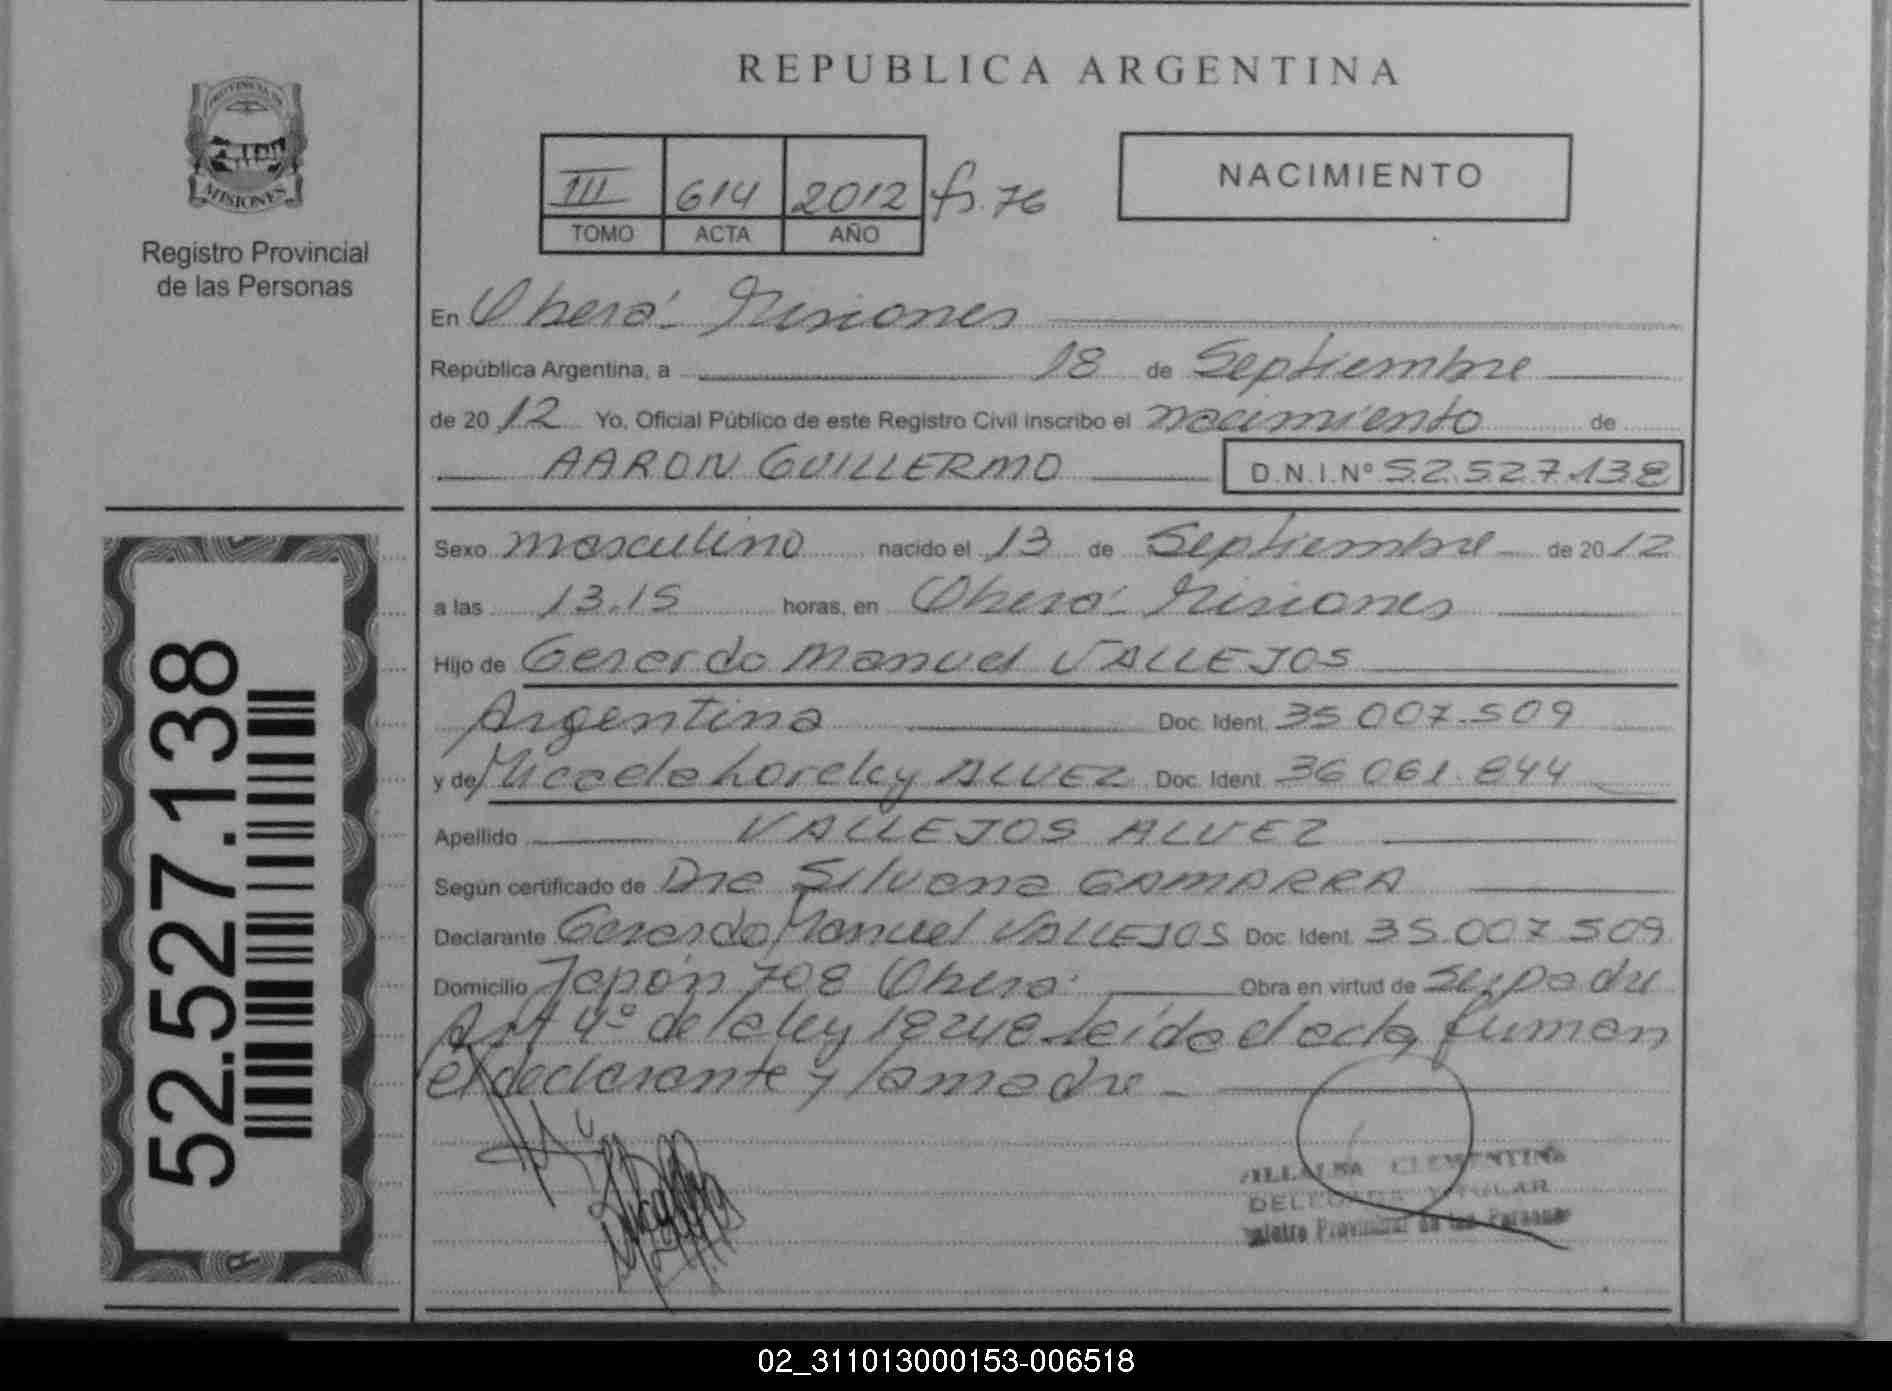 PROVINCIA DE
MISIONES
Registro Provincial
de las Personas
REPUBLICA ARGENTINA
III 614 2012 fs. 76
TOMO ACTA AÑO
NACIMIENTO
En Oberá - Misiones
República Argentina, a 18 de Septiembre
de 2012 Yo, Oficial Público de este Registro Civil inscribo el nacimiento de
AARON GUILLERMO D.N.I.Nº 52.527.138
Sexo masculino nacido el 13 de Septiembre de 2012
a las 13.15 horas, en Oberá - Misiones
Hijo de Gerardo Manuel VALLEJOS
Argentina Doc. Ident. 35 007.509
y de Micaela Loreley ALVEZ Doc. Ident. 36 061.844
Apellido VALLEJOS ALVEZ
Según certificado de Dra Silvana GAMARRA
Declarante Gerardo Manuel VALLEJOS Doc. Ident. 35.007.509
Domicilio Japón 708 Oberá Obra en virtud de ser padre
Art 4º de la ley 18248 Leída el acta, firman
el declarante y la madre -
VILLALBA CLEMENTINA
DELEGADA TITULAR
Registro Provincial de las Personas
52.527.138
02_311013000153-006518